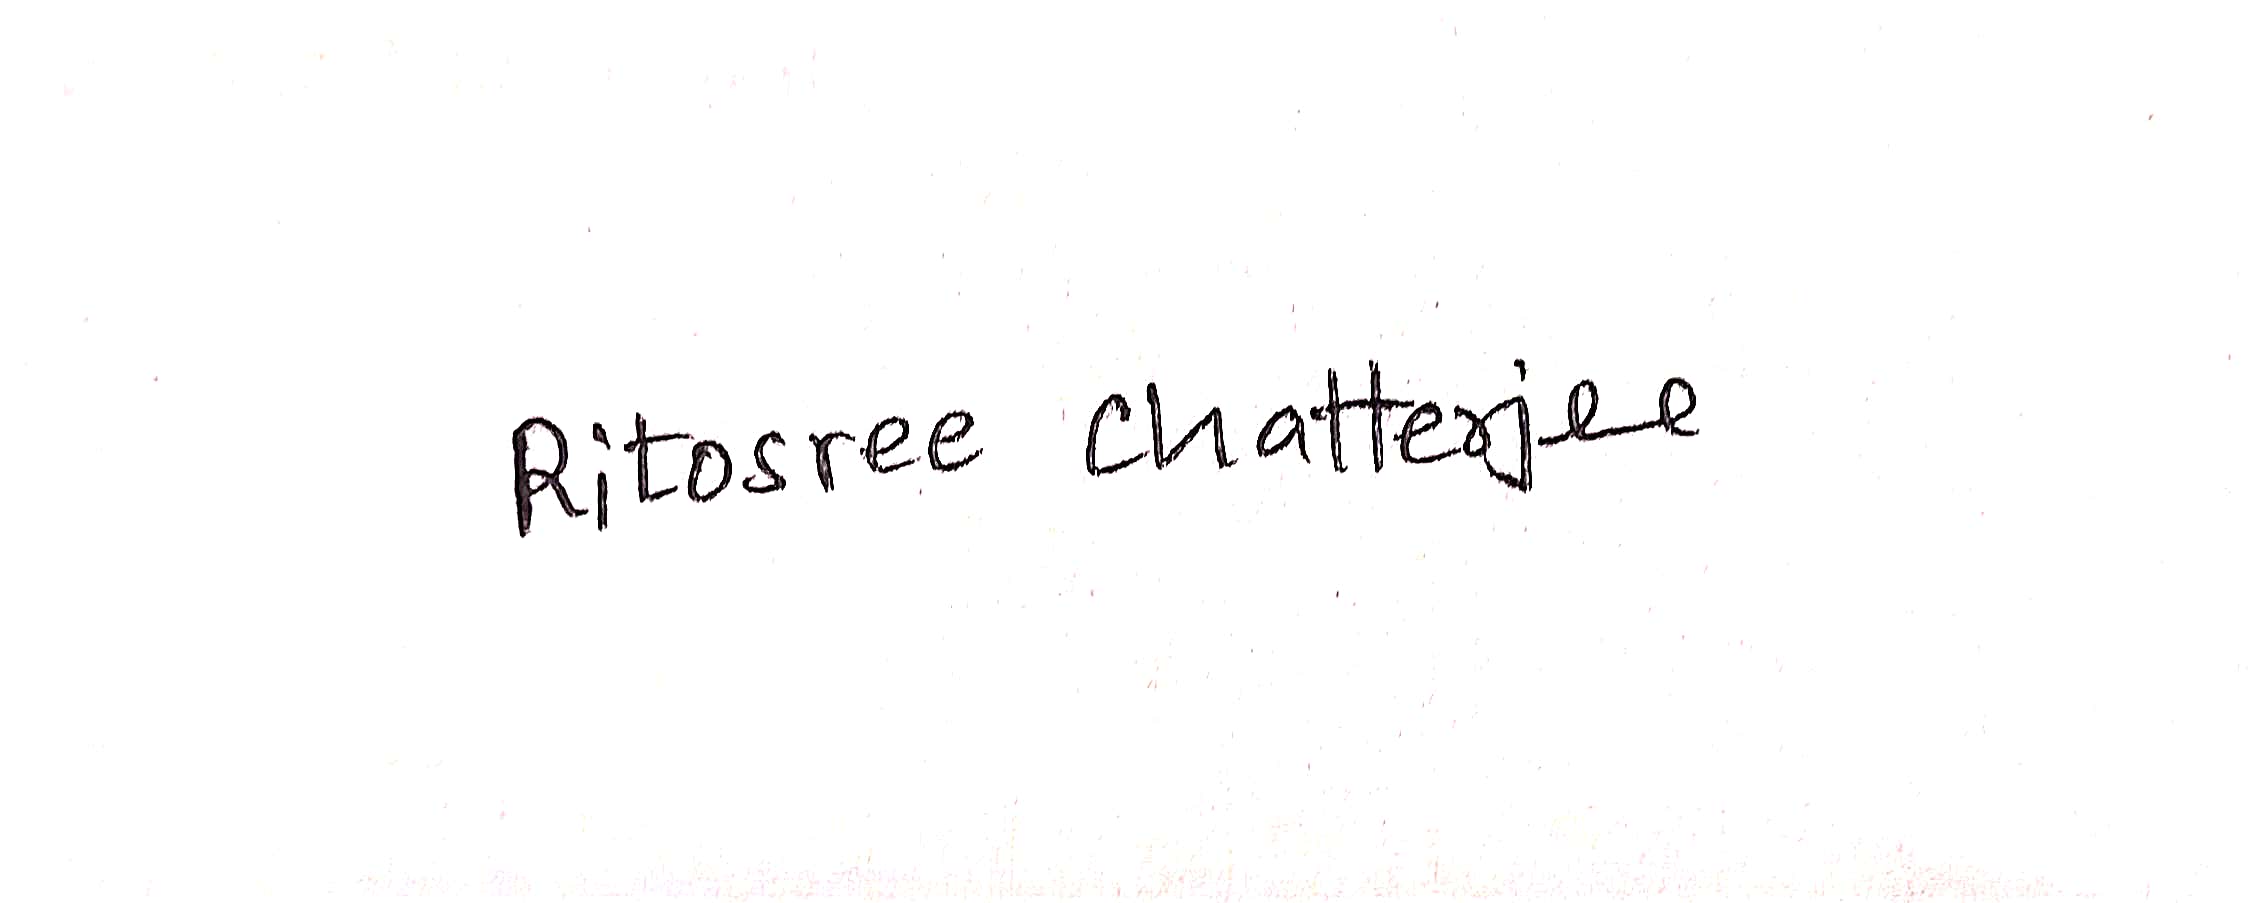 Ritosree Chatterjee